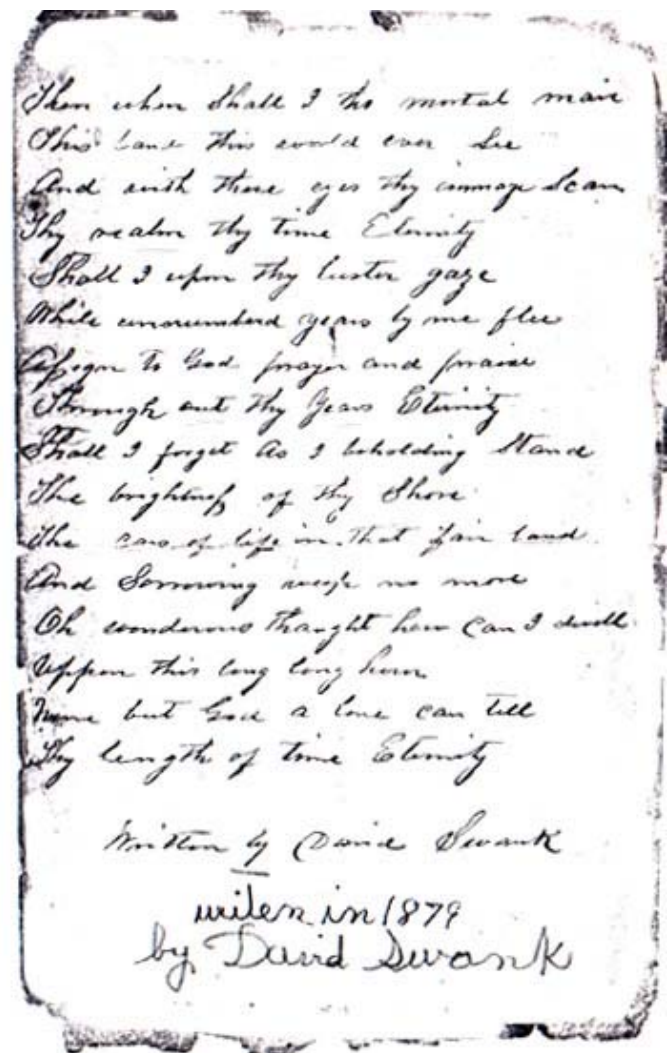 Then when Shall I tho mortal man
This land this world ever See
And with these eyes thy immage Scan
Thy realm thy time Eternity
Shall I upon thy luster gaze
While unnumberd years by me flee
to God prayer and praise
Through out thy Years Eternity
Shall I forget As I beholding Stand
The brightness of thy Shore
The cars of life in that fair land
And Sorrowing weep no more
Oh wonderous thought how can I dwell
Uppon this long long hour
None but God a lone can tell
Thy length of time Eternity
Written by David Swank
writen in 1879
by David Swank